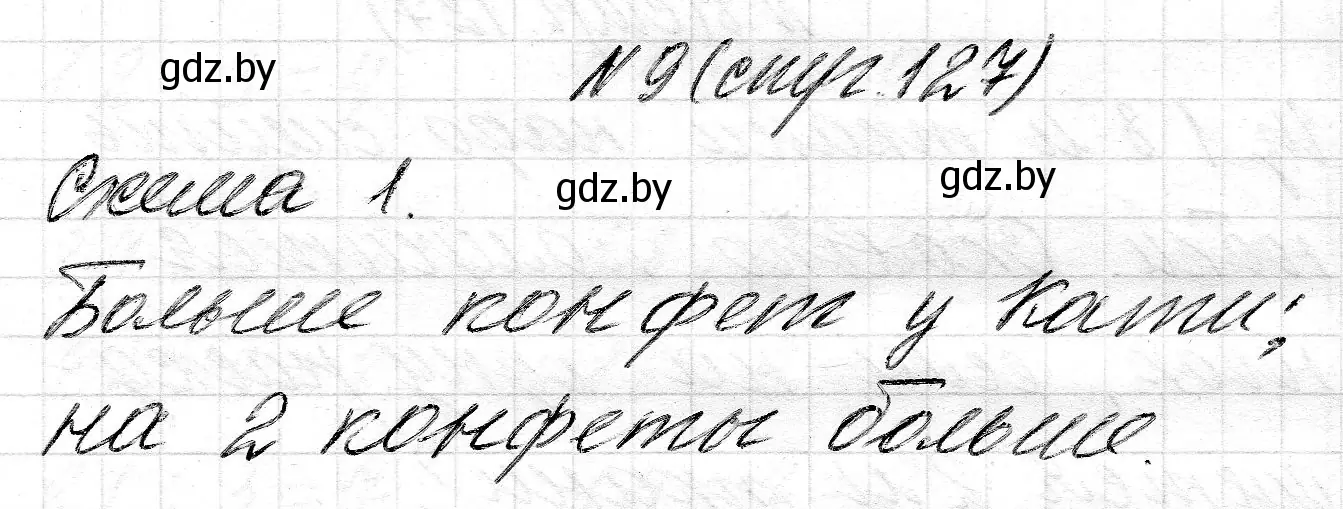 gdz.by
№ 9 (стр. 127)
Схема 1.
gdz.by
gdz.by
Больше конфет у Кати;
на 2 конфеты больше.